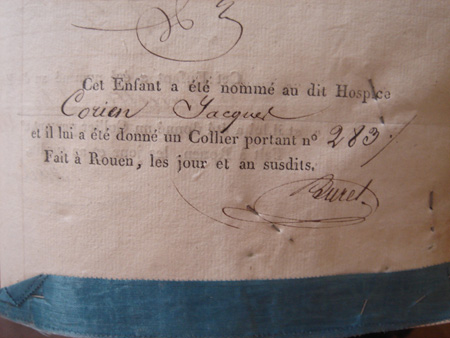 Cet Enfant a été nommé au dit Hospice
Corien Jacques
et il lui a été donné un Collier portant nº 283
Fait à Rouen, les jour et an susdits.
Buret